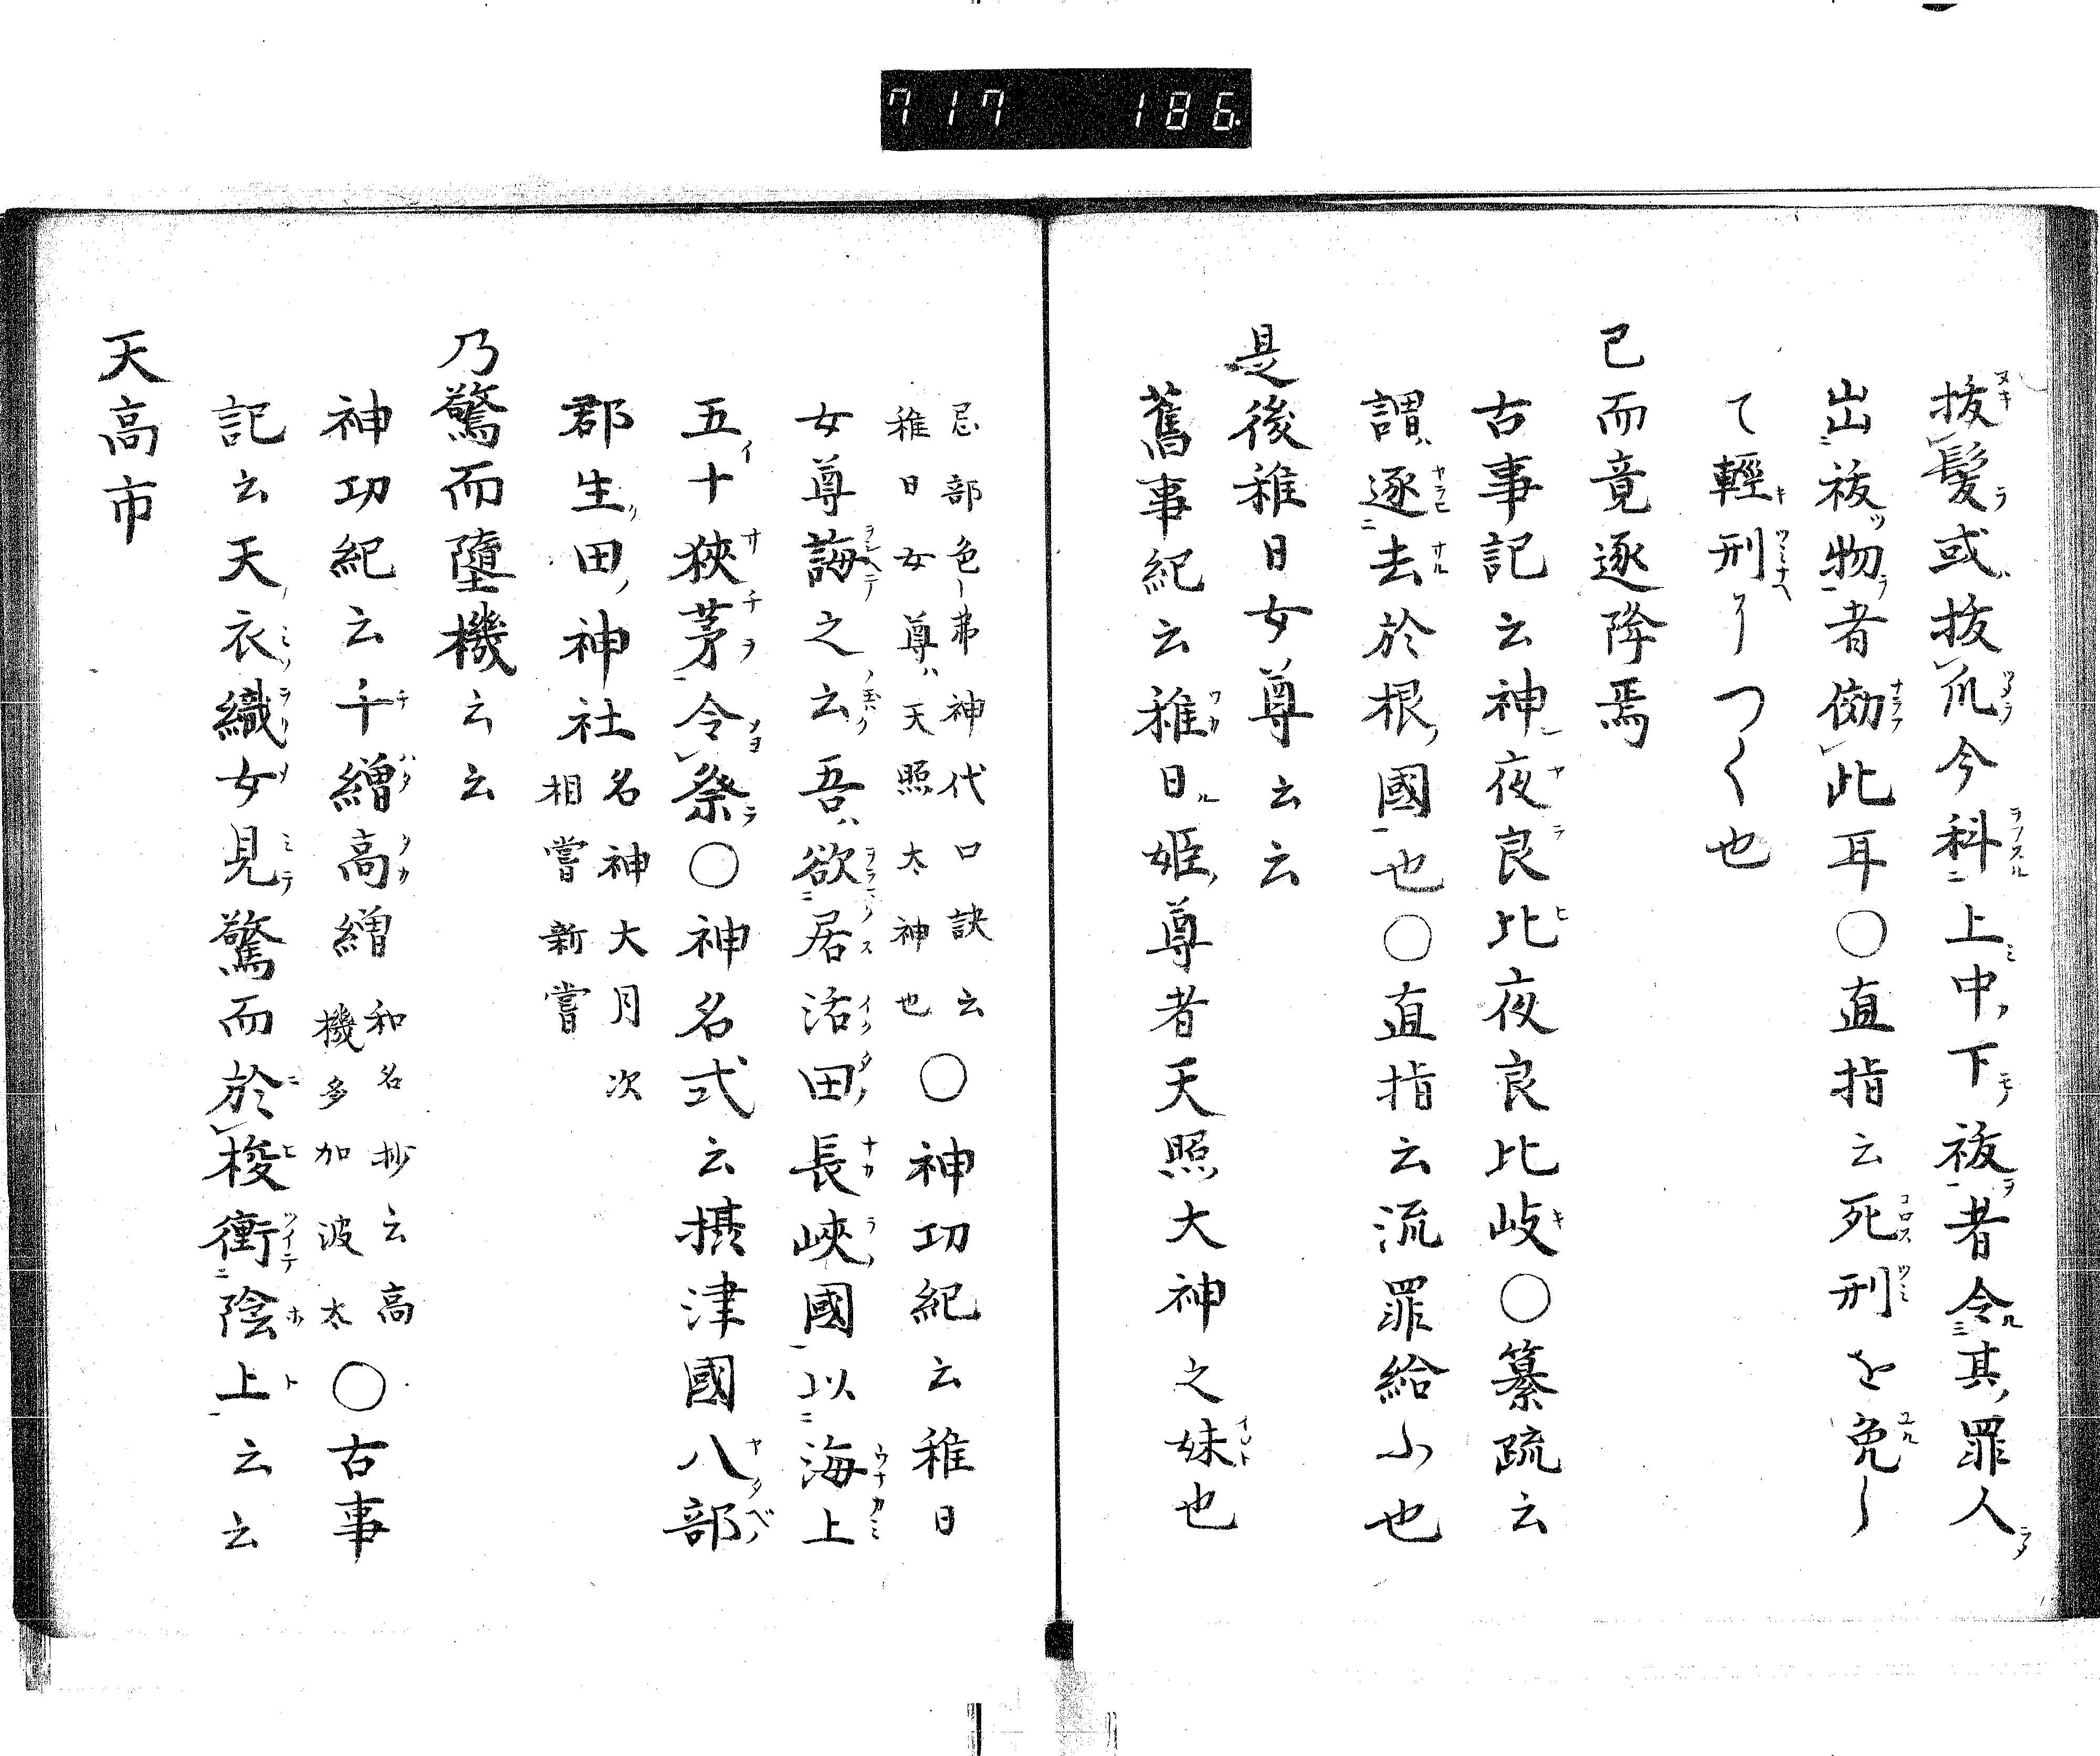 717 186.
抜髪或抜爪今科上中下祓者令其罪人
出祓物者俲此耳〇直指云死刑を免し
て輕刑りつく也
已而竟逐降焉
古事記云神夜良比夜良比岐〇纂疏云
謂逐去於根國也〇直指云流罪給ふ也
是後稚日女尊云云
舊事紀云稚日姫尊者天照大神之妹也
忌部色弗神代口訣云
稚日女尊ハ天照太神也
〇神功紀云稚日
女尊誨之云吾ハ欲居活田長峽國以海上
五十狹茅令祭〇神名式云摂津國八部
郡生田神社
名神大月次
相嘗新嘗
乃驚而墮機云云
神功紀云千繒高繒
和名抄云高
機多加波太
〇古事
記云天衣織女見驚而於梭衝陰上云云
天高市